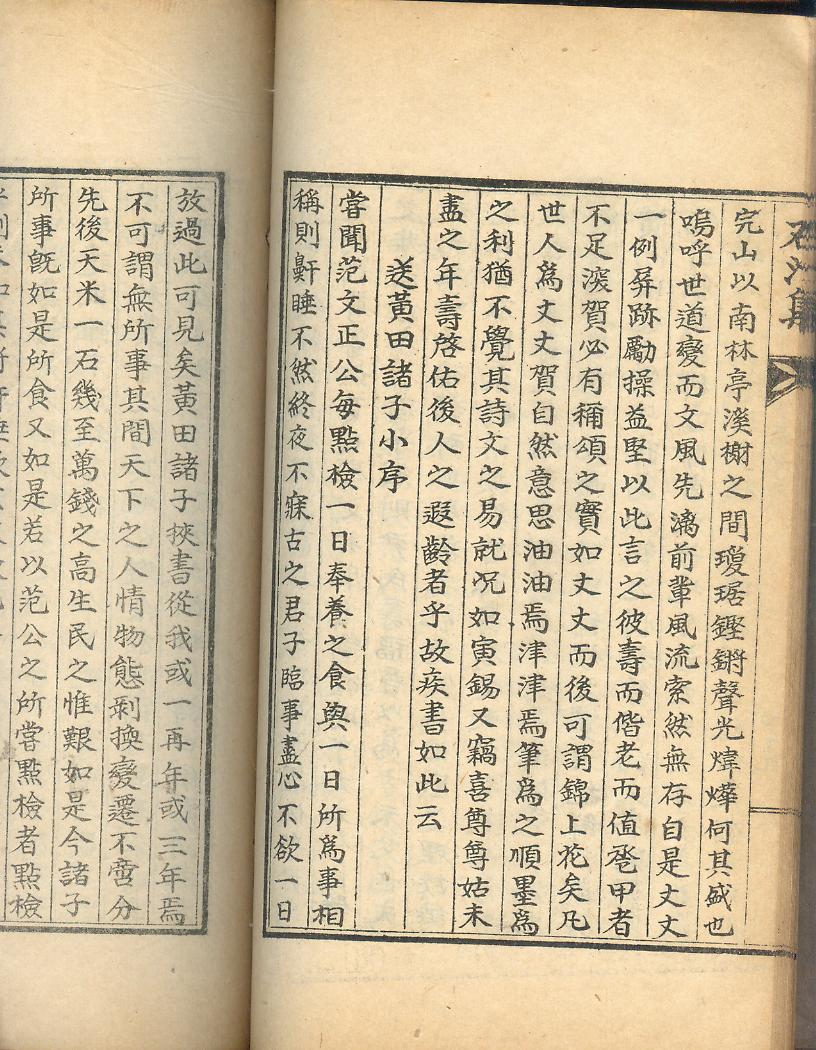 集
完山以南林亭溪榭之間瓊琚鏗鏘聲光煒燁何其盛也
嗚呼世道變而文風先漓前輩風流索然無存自是丈丈
一例屛跡勵操益堅以此言之彼壽而偕老而値卺甲者
不足㴱賀必有稱頌之實如丈丈而後可謂錦上花矣凡
世人爲丈丈賀自然意思油油焉津津焉筆爲之順墨爲
之利猶不覺其詩文之易就况如寅錫又竊喜尊尊姑未
盡之年壽啓佑後人之遐齡者乎故疾書如此云
送黃田諸子小序
甞聞范文正公每點檢一日奉養之食與一日所爲事相
稱則鼾睡不然終夜不寐古之君子臨事盡心不欲一日
放過此可見矣黃田諸子挾書從我或一再年或三年焉
不可謂無所事其間天下之人情物態剝換變遷不啻分
先後天米一石幾至萬錢之高生民之惟艱如是今諸子
所事旣如是所食又如是若以范公之所甞點檢者點檢